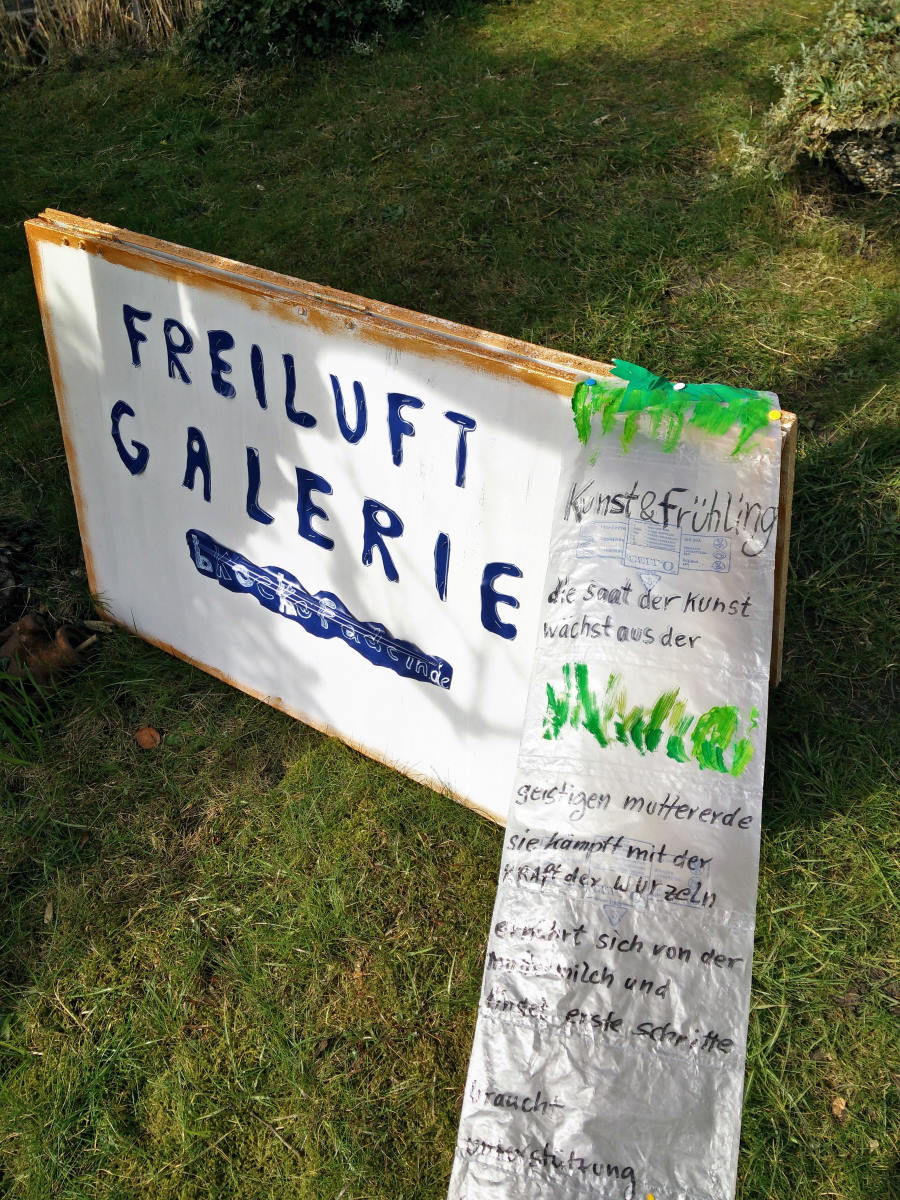 FREILUFT
GALERIE
Kunst&frühling
die saat der kunst
wächst aus der
geistigen muttererde
sie kämpft mit der
KRAft der wurzeln
ernährt sich von der
muttermilch und
findet erste schritte
braucht
unterstützung